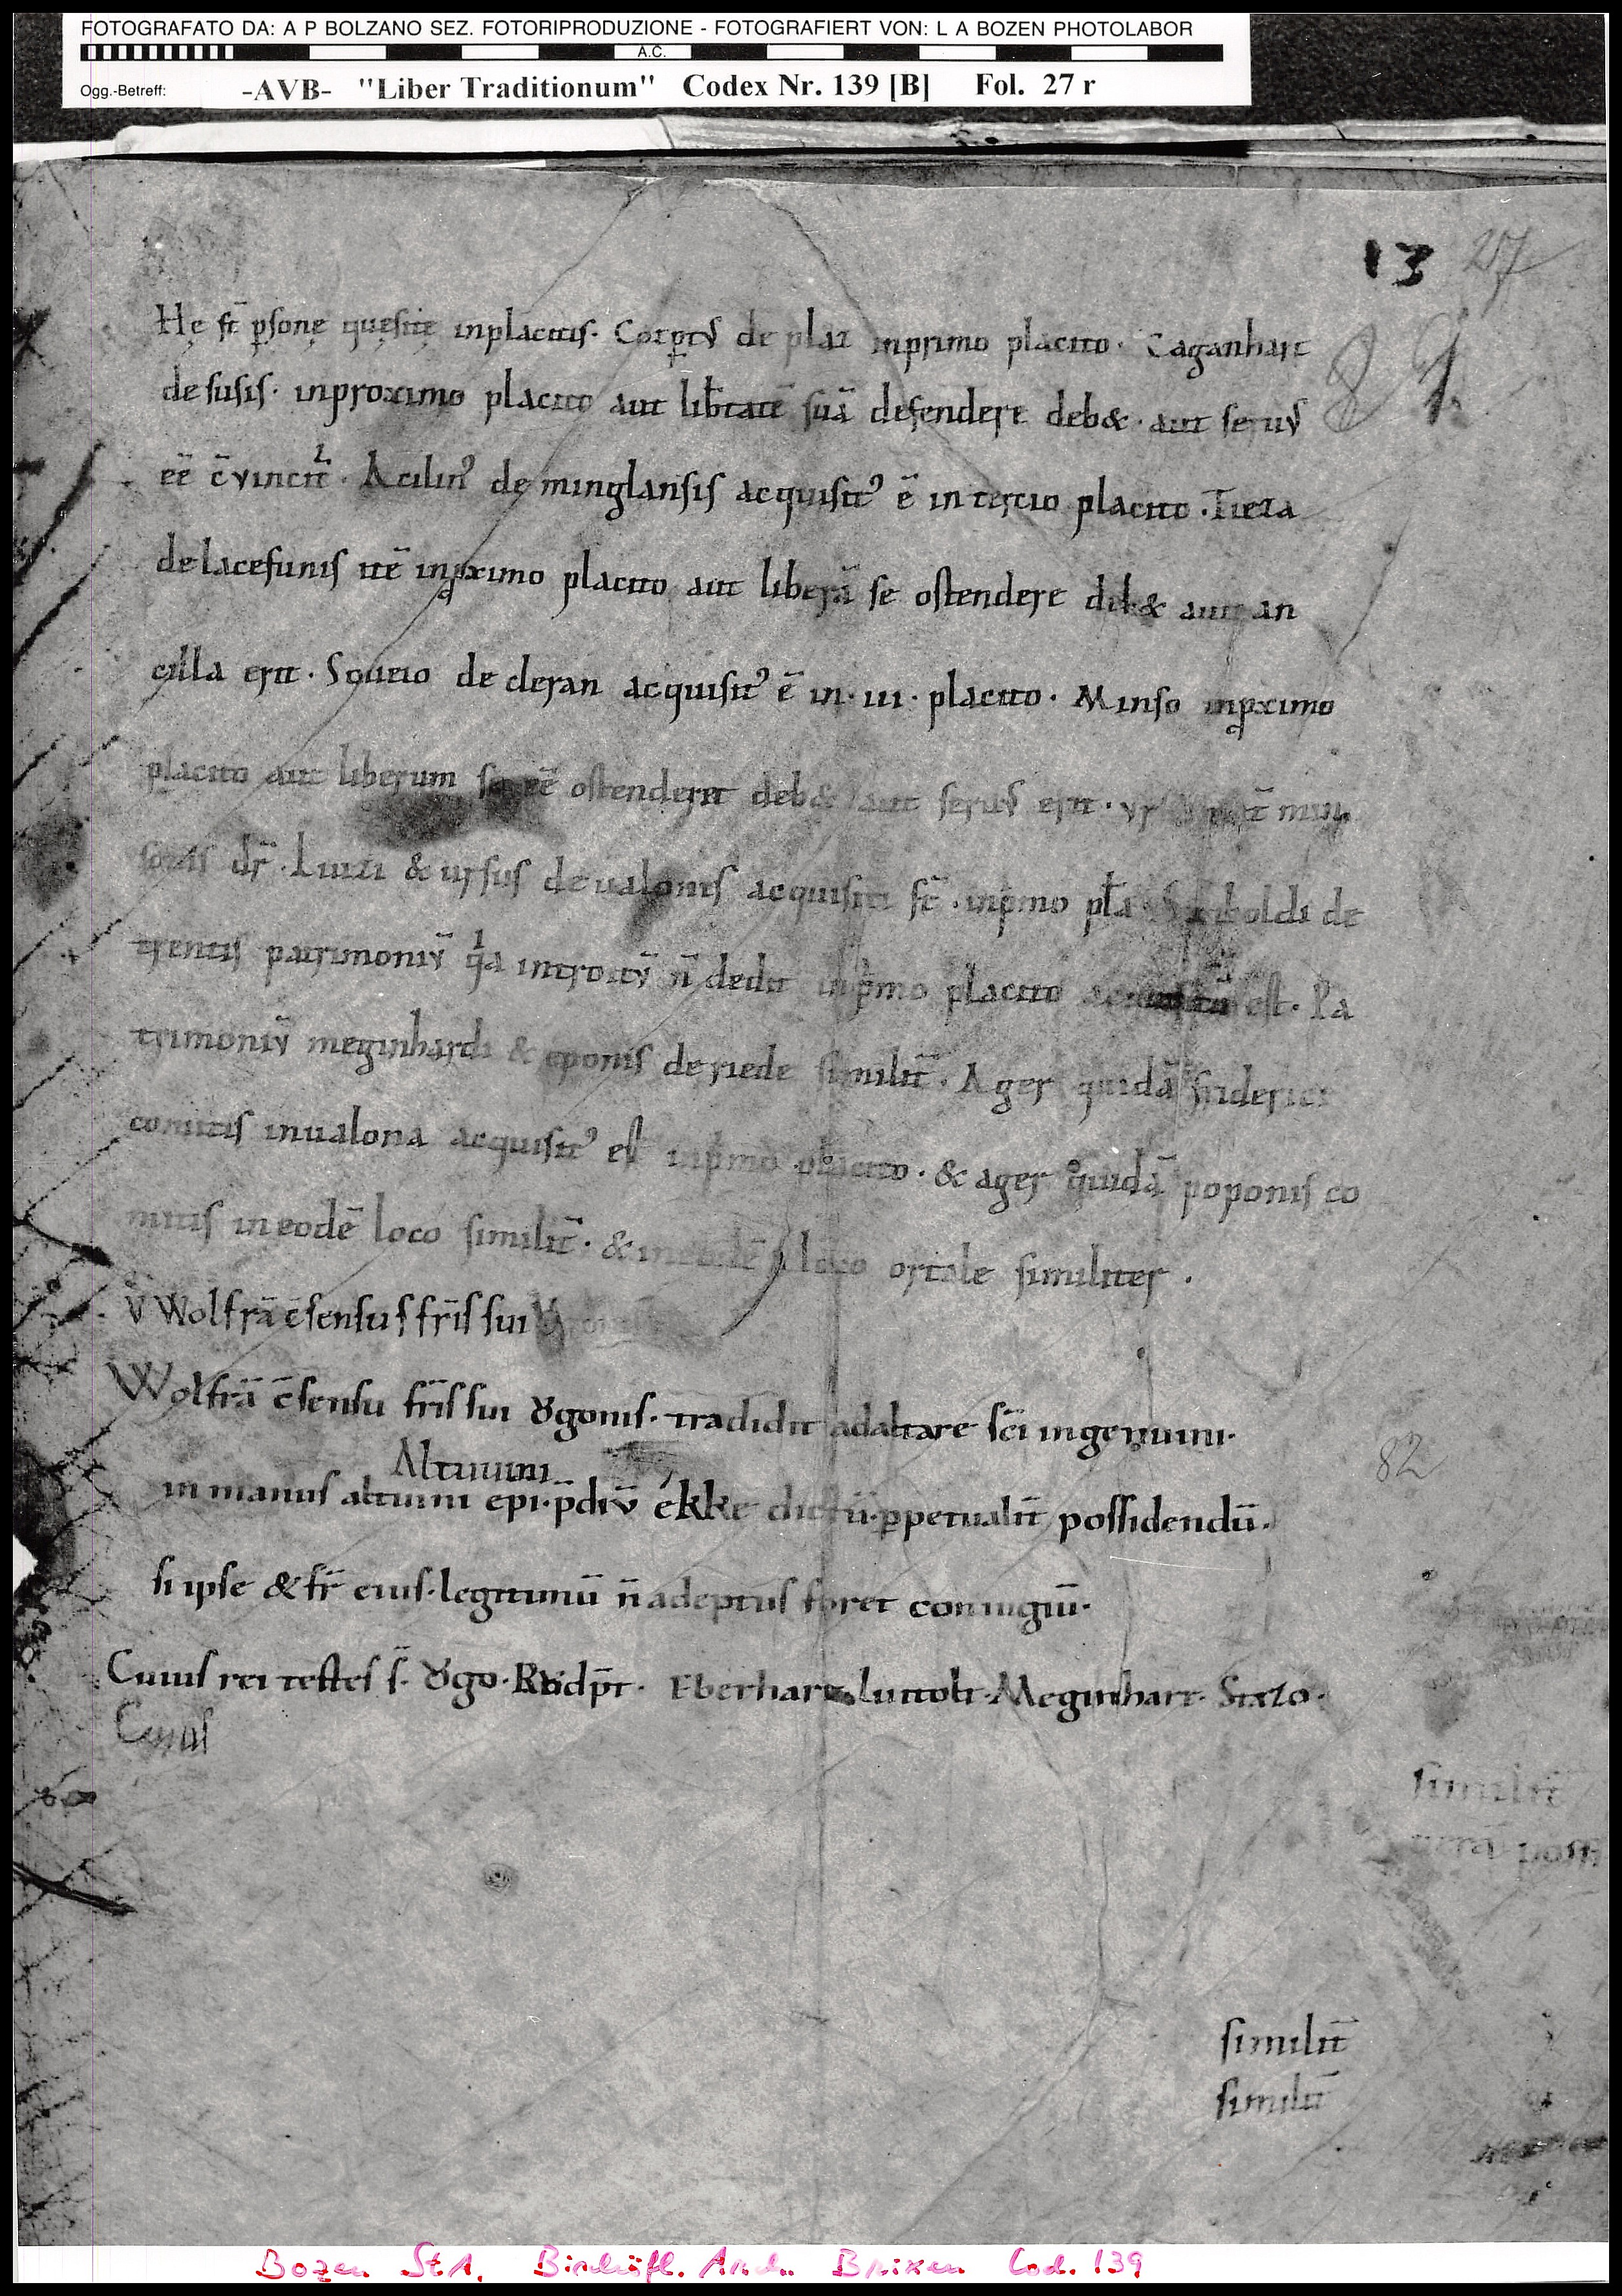 FOTOGRAFATO DA: A P BOLZANO SEZ. FOTORIPRODUZIONE - FOTOGRAFIERT VON: L A BOZEN PHOTOLABOR
A.C.
Ogg.-Betreff: -AVB- "Liber Traditionum" Codex Nr. 139 [B] Fol. 27 r
13 27
Hę st̄ ꝑsonę quęsitę inplacitis. de plaz inprimo placito. Taganhart
81
de susis. inproximo placito aut lib̄tatē suā defendere deb&. aut seruꝰ
eē c̄vincit̄. Acilinꝰ de minglansis acquisitꝰ ē in tercio placito. Tieza
de lacefunis itē inꝓximo placito aut liberā se ostendere deb& aut an
cilla erit. de cleran acquisitꝰ ē in. iii. placito. Minso inꝓximo
placito aut liberum se eē ostenderet deb& aut seruꝰ erit.
dr̄. Liuzi & ursus de ualones acquisiti st̄. inp̄mo pla de
trentis patrimoniv̄ qⁱa introitv̄ n̄ dedit inp̄mo placito est. Pa
trimoniv̄ meginhardi & eponis de riede similit̄. Ager quidā friderici
comitis inualona acquisitꝰ est inp̄mo placito. & ager quidā poponis co
mitis in eodē loco similit̄. & in eodē loco ortale similiter.
v̄ Wolfrā c̄sensu s fr̄is sui
Wolfrā c̄sensu fr̄is sui Ȣgonis. tradidit adaltare sc̄i ingenuini.
Altuuini
82
in manus altuuini ep̄i. p̄div̄ ékke dictū. ꝑpetualit̄ possidendū.
si ipse & fr̄ eius. legitimū n̄ adeptus foret coniugiū.
Cuius rei testes s̄. Ȣgo. Rȣdp̄t. Eberhart. Liutolt. Meginhart. Sizzo.
Cuius
similit̄
similit̄
similit̄
Bozen St.A. Bischöfl. Arch. Brixen Cod. 139